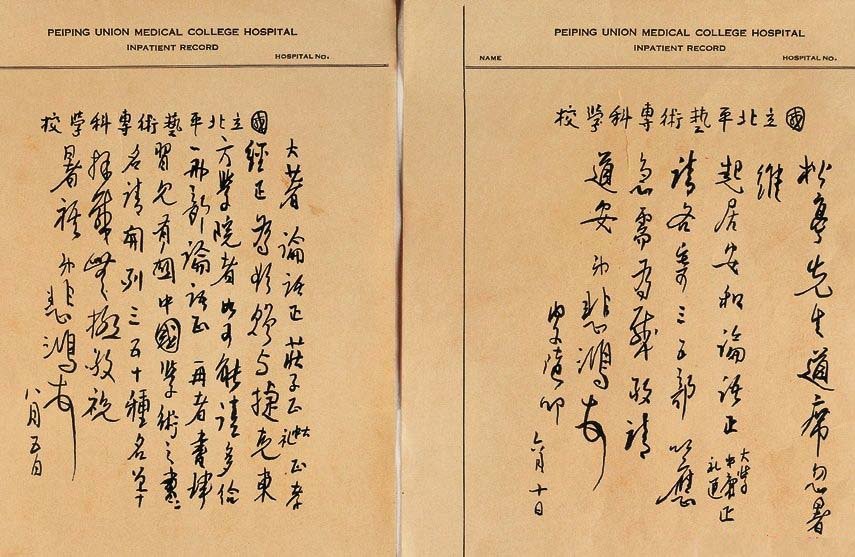 PEIPING UNION MEDICAL COLLEGE HOSPITAL
INPATIENT RECORD
NAME
HOSPITAL NO.
國立北平藝術專科學校
松亭先生道席忽暑
維
起居安和論語正大學正中庸正禮運
請各寄三五部以應
急需為感敬請
道安弟悲鴻
六月十日
PEIPING UNION MEDICAL COLLEGE HOSPITAL
INPATIENT RECORD
HOSPITAL NO.
國立北平藝術專科學校
大著論語正莊子正正孝
經正為與捷克東
方學院者如可能請多給
一部論語正再者書肆
習見有關中國學術之書
名請開列三五十種名單
拜感無敬祝
暑祺弟悲鴻
八月五日